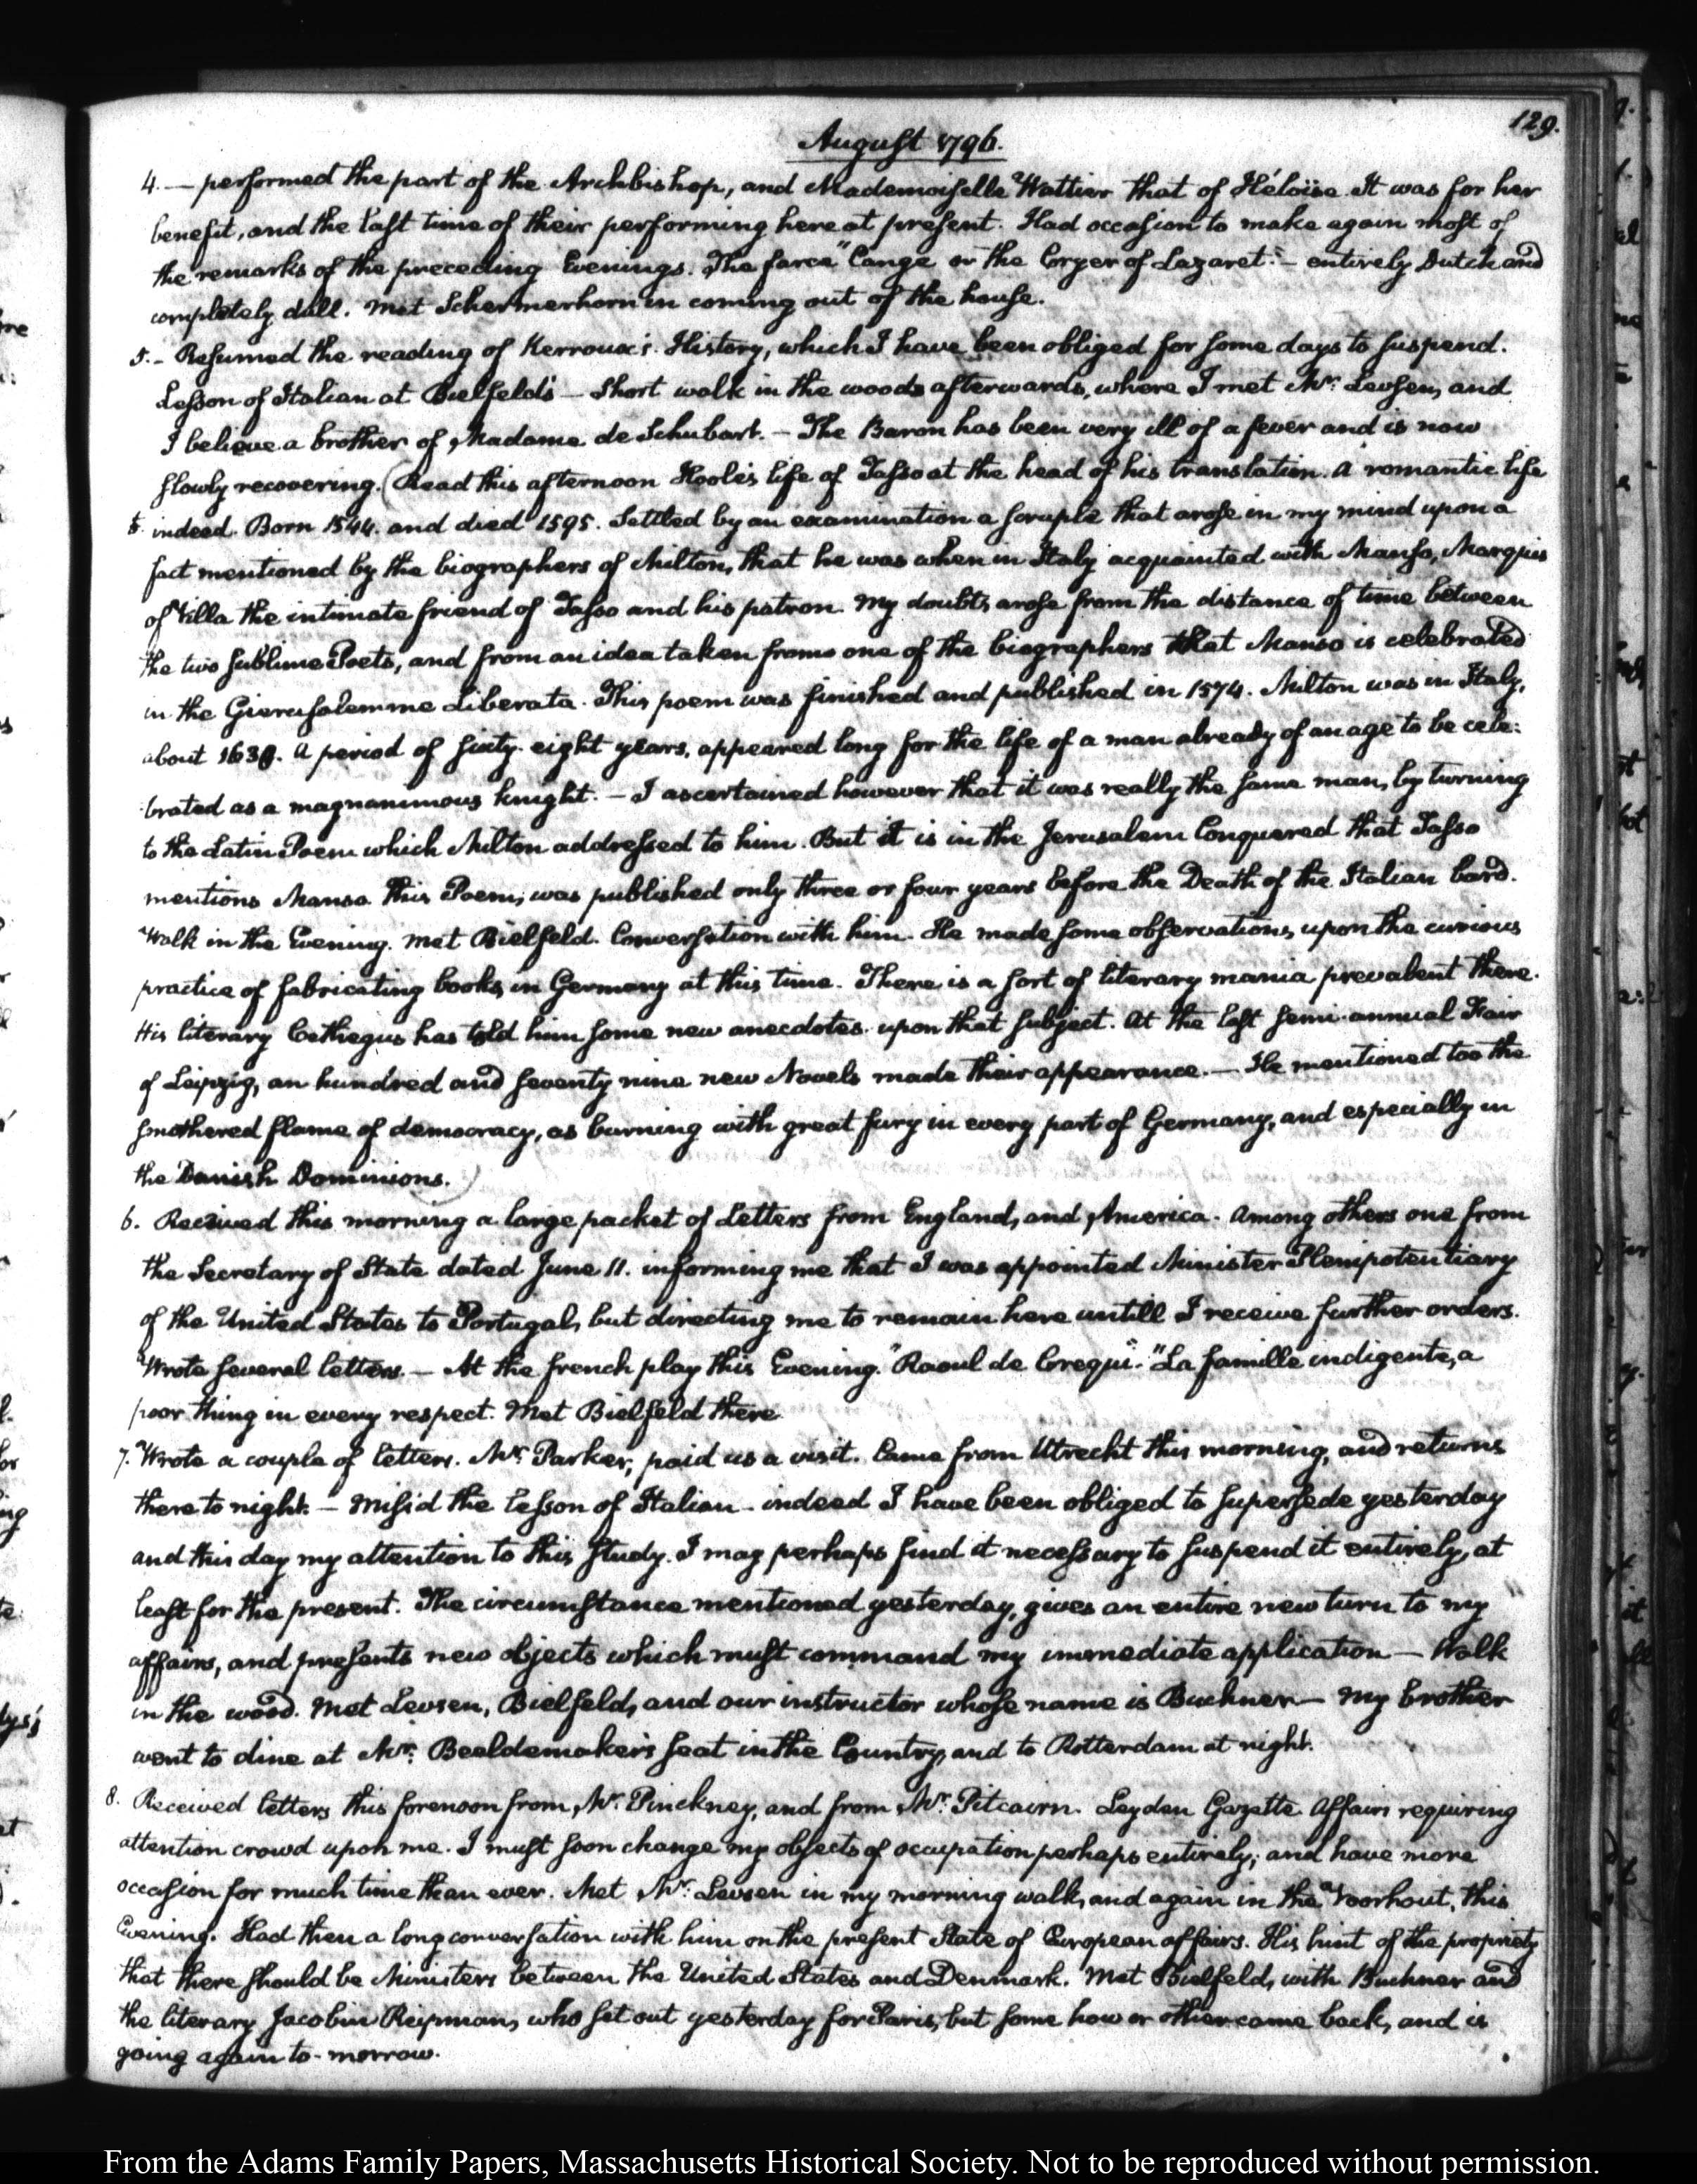 129.
August 1796.
4. — performed the part of the Archbishop, and Mademoiselle Wattier that of Héloïse. It was for her
benefit, and the last time of their performing here at present. Had occasion to make again most of
the remarks of the preceding Evenings. The farce "Cange or the Coryer of Lazaret" — entirely Dutch and
completely dull. Met Schermerhorn in coming out of the house.
5. — Resumed the reading of Kerroux's History, which I have been obliged for some days to suspend.
Lesson of Italian at Bielfeld's — Short walk in the woods afterwards, where I met Mr: Levsen, and
I believe a brother of Madame de Schubart. — The Baron has been very ill of a fever and is now
slowly recovering. (Read this afternoon Hoole's life of Tasso at the head of his translation. A romantic life
5. indeed. Born 1544. and died 1595. Settled by an examination a scruple that arose in my mind upon a
fact mentioned by the biographers of Milton, that he was when in Italy acquainted with Manso, Marquis
of Villa the intimate friend of Tasso and his patron. My doubts arose from the distance of time between
the two sublime Poets, and from an idea taken from one of the biographers that Manso is celebrated
in the Gierusalemme Liberata. This poem was finished and published in 1574. Milton was in Italy,
about 1638. A period of sixty-eight years, appeared long for the life of a man already of an age to be cele:
:brated as a magnanimous knight. — I ascertained however that it was really the same man, by turning
to the Latin Poem which Milton addressed to him. But it is in the Jerusalem Conquered that Tasso
mentions Manso. This Poem, was published only three or four years before the Death of the Italian bard.
Walk in the Evening. Met Bielfeld. Conversation with him. He made some observations, upon the curious
practice of fabricating books, in Germany at this time. There is a sort of literary mania prevalent there.
His literary Cethegus has told him some new anecdotes upon that subject. At the last semi-annual Fair
of Leipzig, an hundred and seventy nine new Novels made their appearance. — He mentioned too the
smothered flame of democracy, as burning with great fury in every part of Germany, and especially in
the Danish Dominions.)
6. Received this morning a large packet of Letters from England, and America. Among others one from
the Secretary of State dated June 11. informing me that I was appointed Minister Plenipotentiary
of the United States to Portugal, but directing me to remain here untill I receive further orders.
Wrote several letters. — At the french play this Evening. "Raoul de Crequi". "La famille indigente, a
poor thing in every respect. Met Bielfeld there.
7. Wrote a couple of letters. Mr. Parker, paid us a visit. Came from Utrecht this morning, and returns
there to night. — Miss'd the lesson of Italian — indeed I have been obliged to supersede yesterday
and this day my attention to this study. I may perhaps find it necessary to suspend it entirely, at
least for the present. The circumstance mentioned yesterday, gives an entire new turn to my
affairs, and presents new objects which must command my immediate application — Walk
in the wood. Met Levsen, Bielfeld, and our instructor whose name is Buchner — My brother
went to dine at Mr: Beeldemaker's seat in the Country, and to Rotterdam at night.
8. Received letters this forenoon from, Mr. Pinckney, and from Mr: Pitcairn. Leyden Gazette. Affairs requiring
attention crowd upon me. I must soon change my objects of occupation perhaps entirely; and have more
occasion for much time than ever. Met Mr: Levsen in my morning walk, and again in the Voorhout, this
Evening. Had then a long conversation with him on the present State of European affairs. His hint of the propriety
that there should be Ministers between the United States and Denmark. Met Bielfeld, with Buchner and
the literary Jacobin Reipman, who set out yesterday for Paris, but some how or other came back, and is
going again to-morrow.
From the Adams Family Papers, Massachusetts Historical Society. Not to be reproduced without permission.